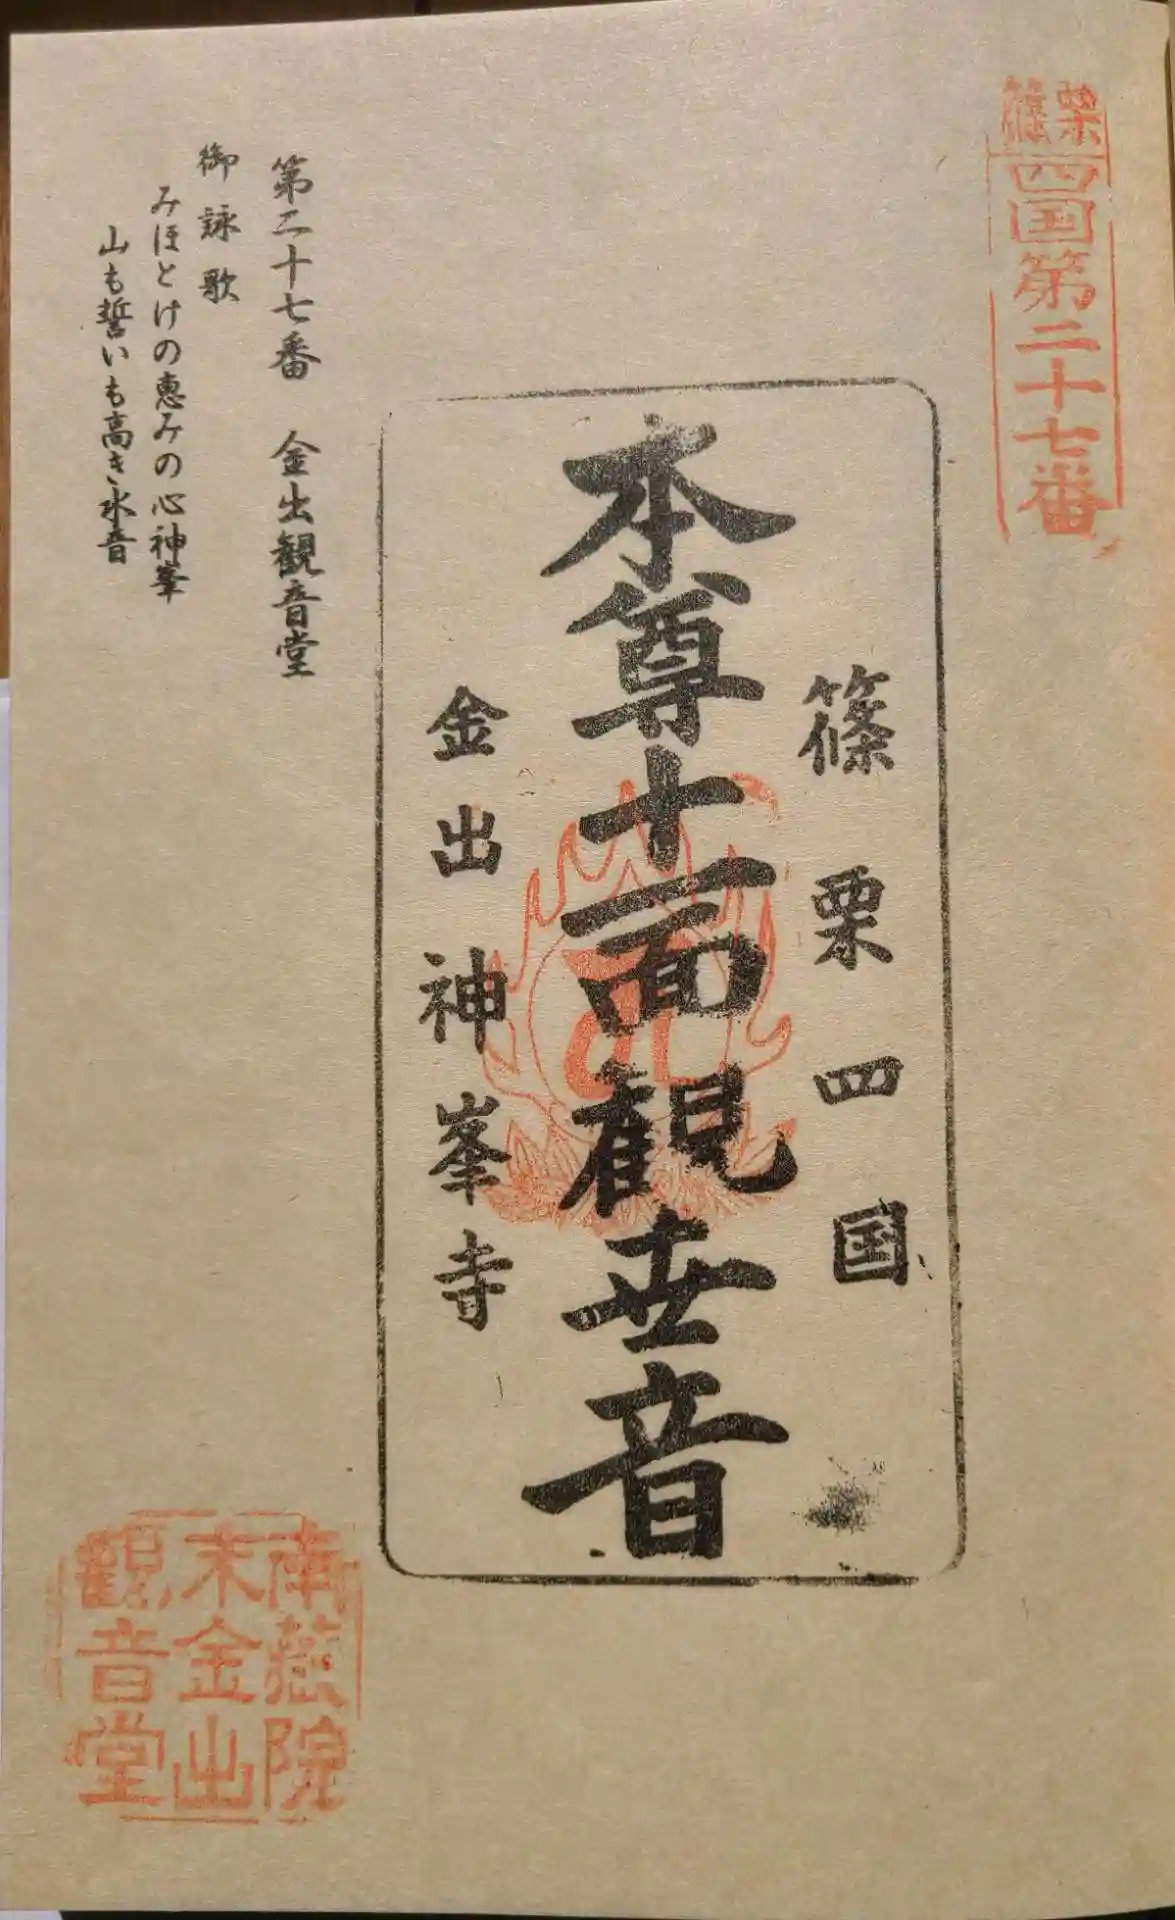 篠栗
四国第二十七番
篠栗四国
本尊十一面観世音
金出神峯寺
第二十七番 金出観音堂
御詠歌
みほとけの恵みの心神峯
山も誓いも高き水音
南蔵院
末金出
観音堂